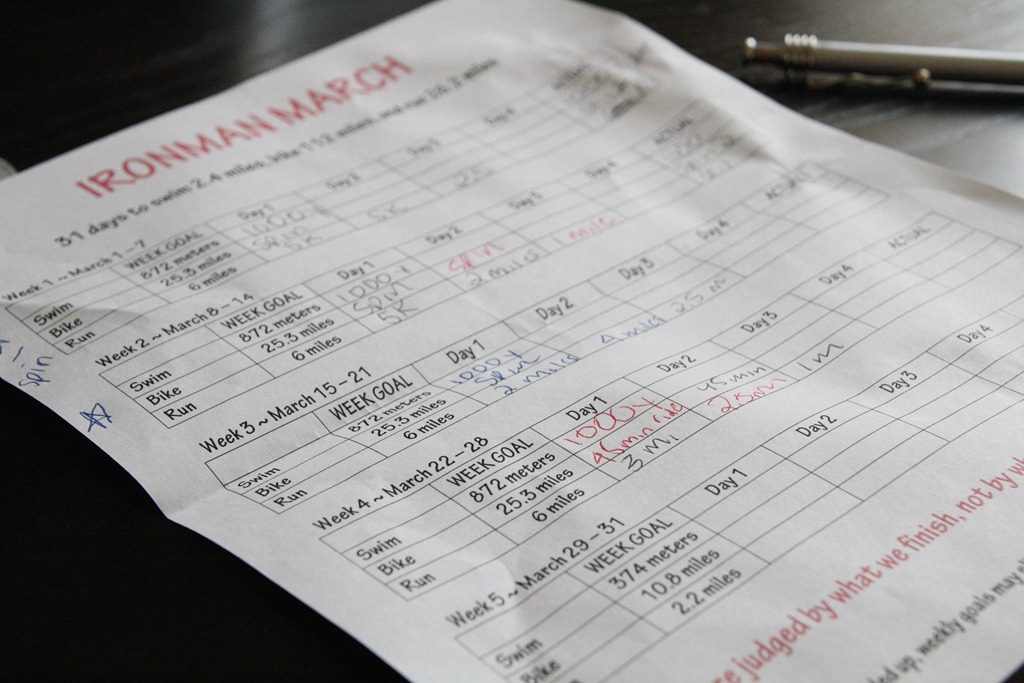 IRONMAN MARCH
31 days to swim 2.4 miles, bike 112 miles, and run 26.2 miles
Week 1 ~ March 1 - 7 WEEK GOAL Day 1 Day 2 Day 3 Day 4
Swim 872 meters 1000y
Bike 25.3 miles spin 25
Run 6 miles 5K 5K
Week 2 ~ March 8 - 14 WEEK GOAL Day 1 Day 2 Day 3 Day 4 ACTUAL
Swim 872 meters 1000y
Bike 25.3 miles spin spin
Run 6 miles 5K 2 miles 1 mile
spin
Week 3 ~ March 15 - 21 WEEK GOAL Day 1 Day 2 Day 3 Day 4 ACTUAL
Swim 872 meters 1000y
Bike 25.3 miles spin 25m
Run 6 miles 2 miles 4 miles
Week 4 ~ March 22 - 28 WEEK GOAL Day 1 Day 2 Day 3 Day 4 ACTUAL
Swim 872 meters 1000y
Bike 25.3 miles 45 min ride 45 min 25m 1m
Run 6 miles 3 mi
Week 5 ~ March 29 - 31 WEEK GOAL Day 1 Day 2 Day 3 Day 4
Swim 374 meters
Bike 10.8 miles
2.2 miles
judged by what we finish, not by
up, weekly goals may